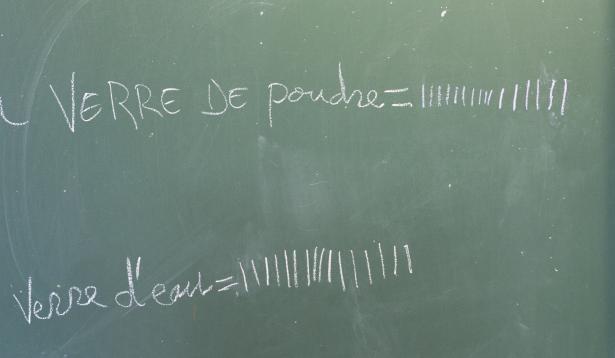 VERRE DE poudre= ||||||||||||||||||
Verre d'eau= ||||||||||||||||||